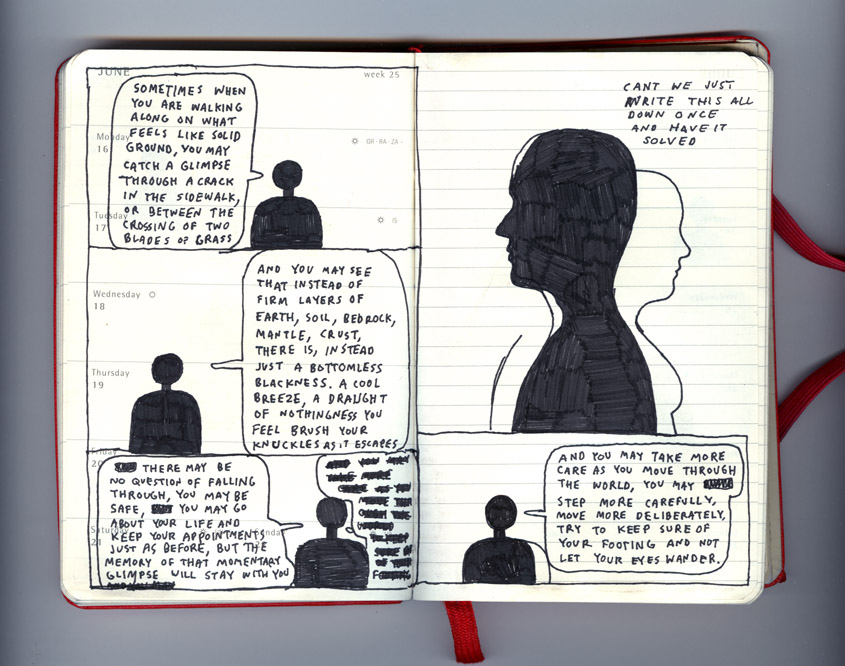 JUNE
week 25
SOMETIMES WHEN
YOU ARE WALKING
ALONG ON WHAT
FEELS LIKE SOLID
GROUND, YOU MAY
CATCH A GLIMPSE
THROUGH A CRACK
IN THE SIDEWALK,
OR BETWEEN THE
CROSSING OF TWO
BLADES OF GRASS
Monday
16
GR-RA-ZA-
Tuesday
17
IS
AND YOU MAY SEE
THAT INSTEAD OF
FIRM LAYERS OF
EARTH, SOIL, BEDROCK,
MANTLE, CRUST,
THERE IS, INSTEAD
JUST A BOTTOMLESS
BLACKNESS. A COOL
BREEZE, A DRAUGHT
OF NOTHINGNESS YOU
FEEL BRUSH YOUR
KNUCKLES AS IT ESCAPES
Wednesday
18
Thursday
19
THERE MAY BE
NO QUESTION OF FALLING
THROUGH, YOU MAY BE
SAFE, YOU MAY GO
ABOUT YOUR LIFE AND
KEEP YOUR APPOINTMENTS
JUST AS BEFORE, BUT THE
MEMORY OF THAT MOMENTARY
GLIMPSE WILL STAY WITH YOU
Saturday
21
CANT WE JUST
WRITE THIS ALL
DOWN ONCE
AND HAVE IT
SOLVED
AND YOU MAY TAKE MORE
CARE AS YOU MOVE THROUGH
THE WORLD, YOU MAY
STEP MORE CAREFULLY,
MOVE MORE DELIBERATELY,
TRY TO KEEP SURE OF
YOUR FOOTING AND NOT
LET YOUR EYES WANDER.